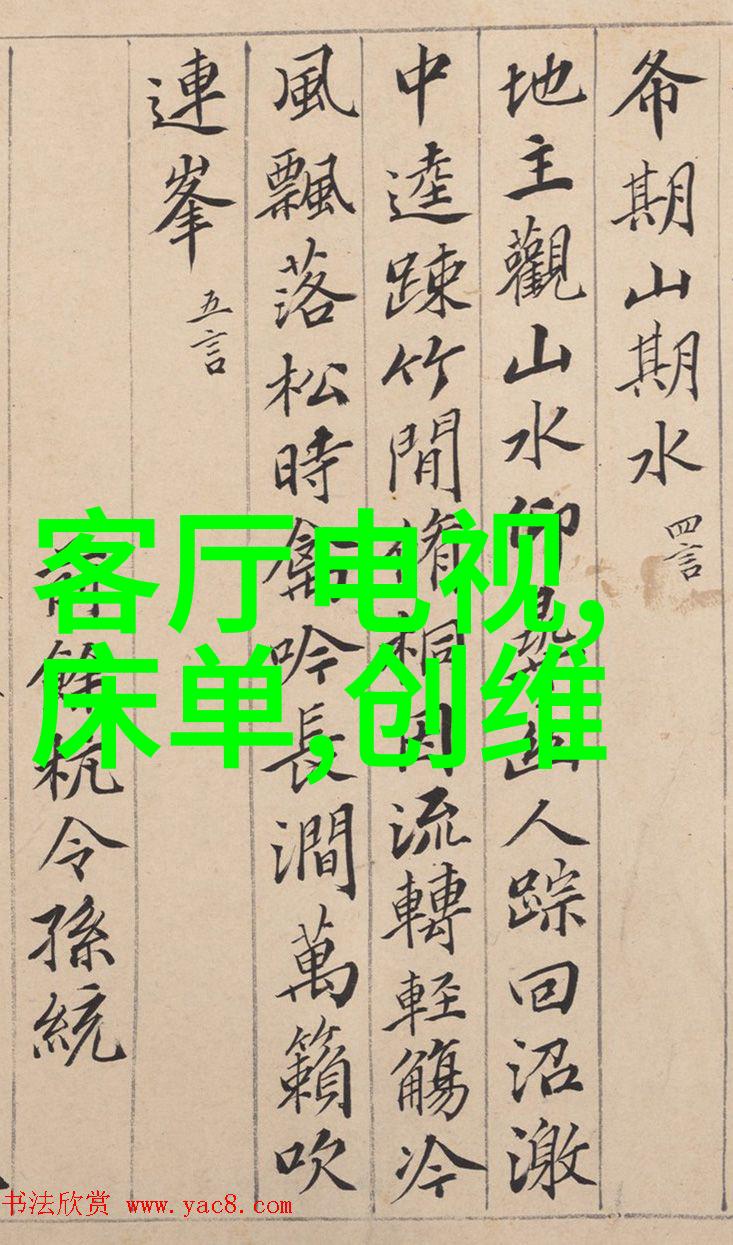 希期山期水 四言
地主觀山水仰尋幽人踪回沼激
中逵踈竹間脩桐因流轉輕觴冷
風飄落松時禽吟長澗萬籟吹
連峯 五言
前餘杭令孫統
客厅电视,
床单,创维
书法欣赏 www.yac8.com